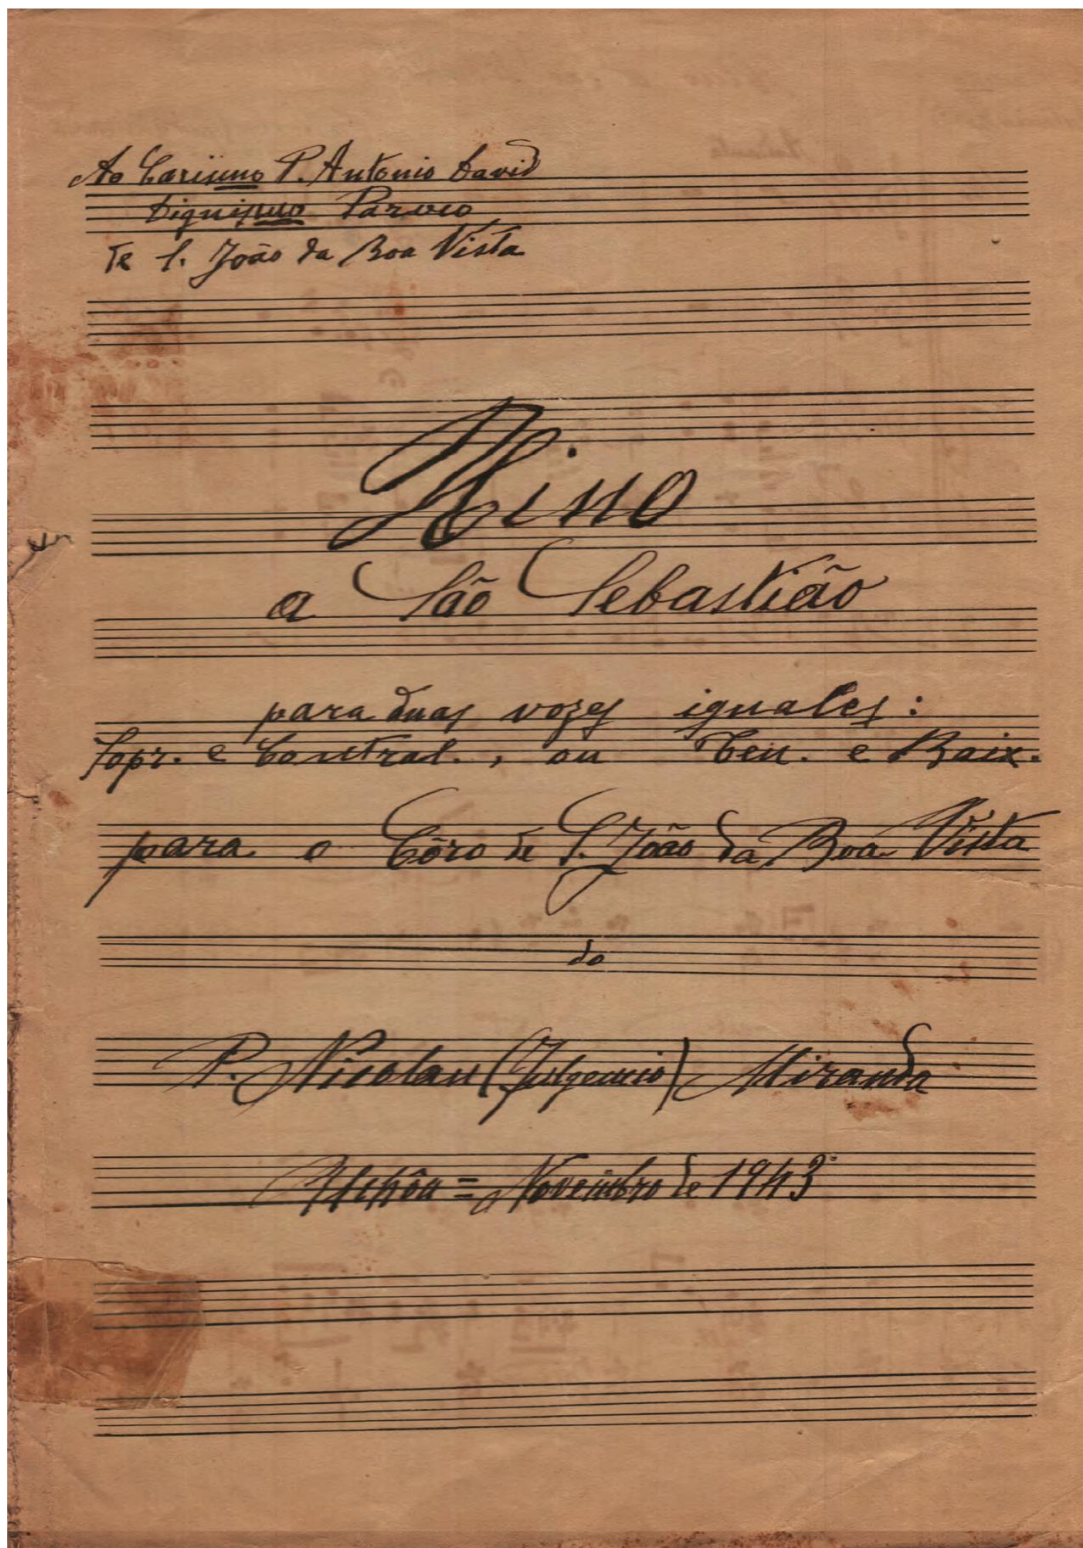 Ao Carismo P. Antonio David
Dignismo Paroco
de S. João da Boa Vista
Hino
a São Sebastião
para duas vozes iguales:
Sopr. e Contral., ou Ten. e Baix.
para o Côro de S. João da Boa Vista
do
P. Nicolau (Fulgencio) Miranda
= Novembro de 1943